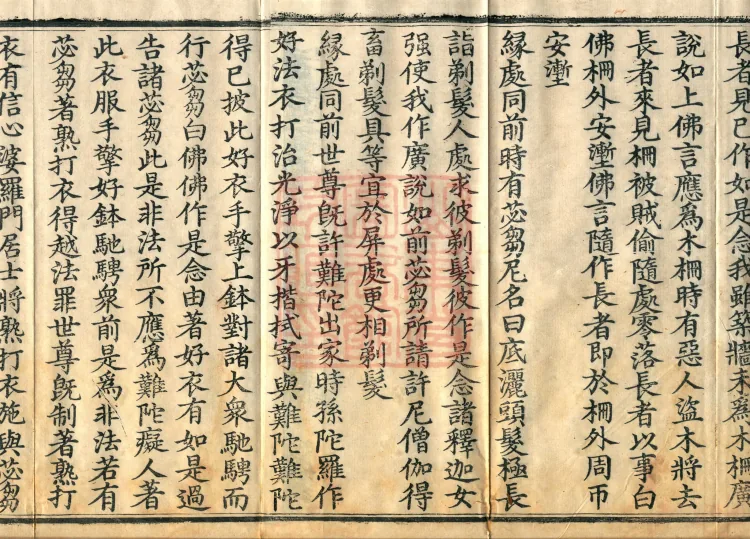 長者見已作如是念我雖築牆未爲木柵廣
說如上佛言應爲木柵時有惡人盜木將去
長者來見柵被賊偷隨處零落長者以事白
佛柵外安壍佛言隨作長者即於柵外周帀
安壍
緣處同前時有苾芻尼名曰底灑頭髮極長
詣剃髮人處求彼剃髮彼作是念諸釋迦女
强使我作廣說如前苾芻所請許尼僧伽得
畜剃髮具等宜於屏處更相剃髮
緣處同前世尊旣許難陀出家時孫陀羅作
好法衣打治光淨以牙揩拭寄與難陀難陀
得已披此好衣手擎上鉢對諸大衆馳騁而
行苾芻白佛佛作是念由著好衣有如是過
告諸苾芻此是非法所不應為難陀癡人著
此衣服手擎好鉢馳騁衆前是為非法若有
苾芻著熟打衣得越法罪世尊旣制著熟打
衣有信心婆羅門居士將熟打衣施與苾芻